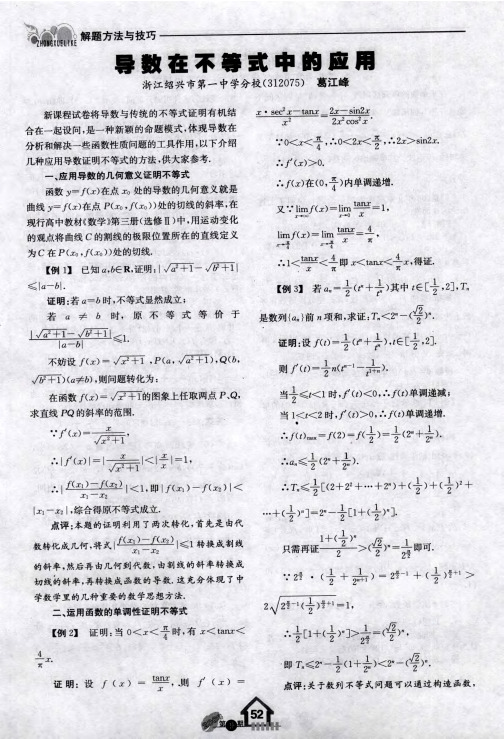 ZHONGXUELIKE 解题方法与技巧
导数在不等式中的应用
浙江绍兴市第一中学分校(312075) 葛江峰
新课程试卷将导数与传统的不等式证明有机结
合在一起设问,是一种新颖的命题模式,体现导数在
分析和解决一些函数性质问题的工具作用,以下介绍
几种应用导数证明不等式的方法,供大家参考.
一、应用导数的几何意义证明不等式
函数 y=f(x)在点 x₀ 处的导数的几何意义就是
曲线 y=f(x)在点 P(x₀,f(x₀))处的切线的斜率,在
现行高中教材《数学》第三册(选修Ⅱ)中,用运动变化
的观点将曲线 C 的割线的极限位置所在的直线定义
为 C 在 P(x₀,f(x₀))处的切线.
【例1】 已知 a,b∈R,证明:|√(a²+1)-√(b²+1)|
≤|a-b|.
证明:若 a=b 时,不等式显然成立;
若 a≠b 时,原不等式等价于
|√(a²+1)-√(b²+1)|/|a-b|≤1.
不妨设 f(x)=√(x²+1),P(a,√(a²+1)),Q(b,
√(b²+1))(a≠b),则问题转化为:
在函数 f(x)=√(x²+1)的图象上任取两点 P、Q,
求直线 PQ 的斜率的范围.
∵f′(x)=x/√(x²+1),
∴|f′(x)|=|x/√(x²+1)|<|x/x|=1,
∴|(f(x₁)-f(x₂))/(x₁-x₂)|<1,即|f(x₁)-f(x₂)|<
|x₁-x₂|,综合得原不等式成立.
点评:本题的证明利用了两次转化,首先是由代
数转化成几何,将式|(f(x₁)-f(x₂))/(x₁-x₂)|≤1 转换成割线
的斜率,然后再由几何到代数,由割线的斜率转换成
切线的斜率,再转换成函数的导数.这充分体现了中
学数学里的几种重要的数学思想方法.
二、运用函数的单调性证明不等式
【例2】 证明:当 0<x<π/4 时,有 x<tanx<
4/π x.
证明:设 f(x)=tanx/x,则 f′(x)=
(x·sec²x-tanx)/x²=(2x-sin2x)/(2x²cos²x).
∵0<x<π/4,∴0<2x<π/2,∴2x>sin2x.
∴f′(x)>0.
∴f(x)在(0,π/4)内单调递增.
又∵lim f(x)=lim(x→0) tanx/x=1,
lim(x→π/4) f(x)=lim(x→π/4) tanx/x=4/π,
∴1<tanx/x<4/π即 x<tanx<4/π x,得证.
【例3】 若 aₙ=1/2(tⁿ+1/tⁿ)其中 t∈[1/2,2],Tₙ
是数列{aₙ}前 n 项和,求证:Tₙ<2ⁿ-(√2/2)ⁿ.
证明:设 f(t)=1/2(tⁿ+1/tⁿ),t∈[1/2,2].
则 f′(t)=1/2 n(tⁿ⁻¹-1/tⁿ⁺¹),
当1/2≤t<1 时,f′(t)<0,∴f(t)单调递减;
当 1<t<2 时,f′(t)>0,∴f(t)单调递增.
∴f(t)max=f(2)=f(1/2)=1/2(2ⁿ+1/2ⁿ).
∴aₙ≤1/2(2ⁿ+1/2ⁿ).
∴Tₙ≤1/2[(2+2²+…+2ⁿ)+(1/2)+(1/2)²+
…+(1/2)ⁿ]=2ⁿ-1/2[1+(1/2)ⁿ].
只需再证(1+(1/2)ⁿ)/2>(√2/2)ⁿ=1/2^(n/2)即可.
∵2^(n/2)·(1/2+1/2ⁿ⁺¹)=2^(n/2-1)+(1/2)^(n/2+1)>
2√(2^(n/2-1)(1/2)^(n/2+1))=1,
∴1/2[1+(1/2)ⁿ]>1/2^(n/2)=(√2/2)ⁿ,
即 Tₙ≤2ⁿ-1/2(1+1/2ⁿ)<2ⁿ-(√2/2)ⁿ.
点评:关于数列不等式问题可以通过构造函数,
52